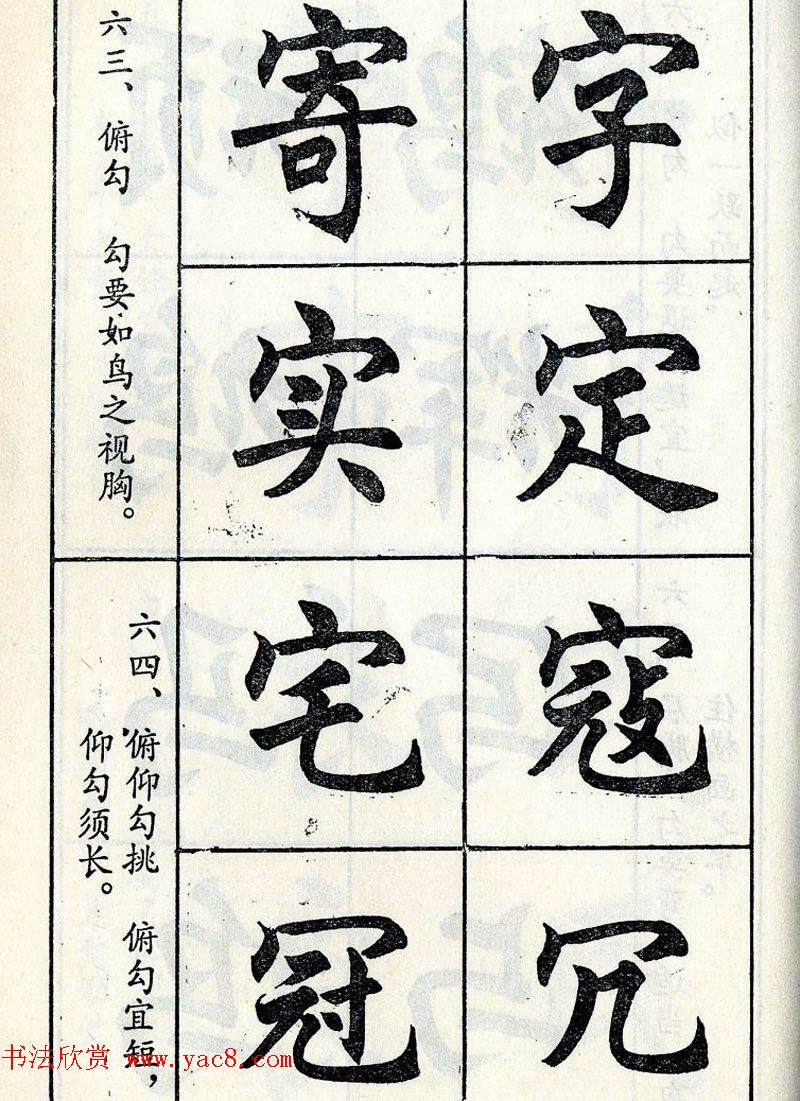 字定
寄实
六三、俯勾 勾要如鸟之视胸。
寇冗
宅冠
六四、俯仰勾挑 俯勾宜短，
仰勾须长。
书法欣赏 www.yac8.com